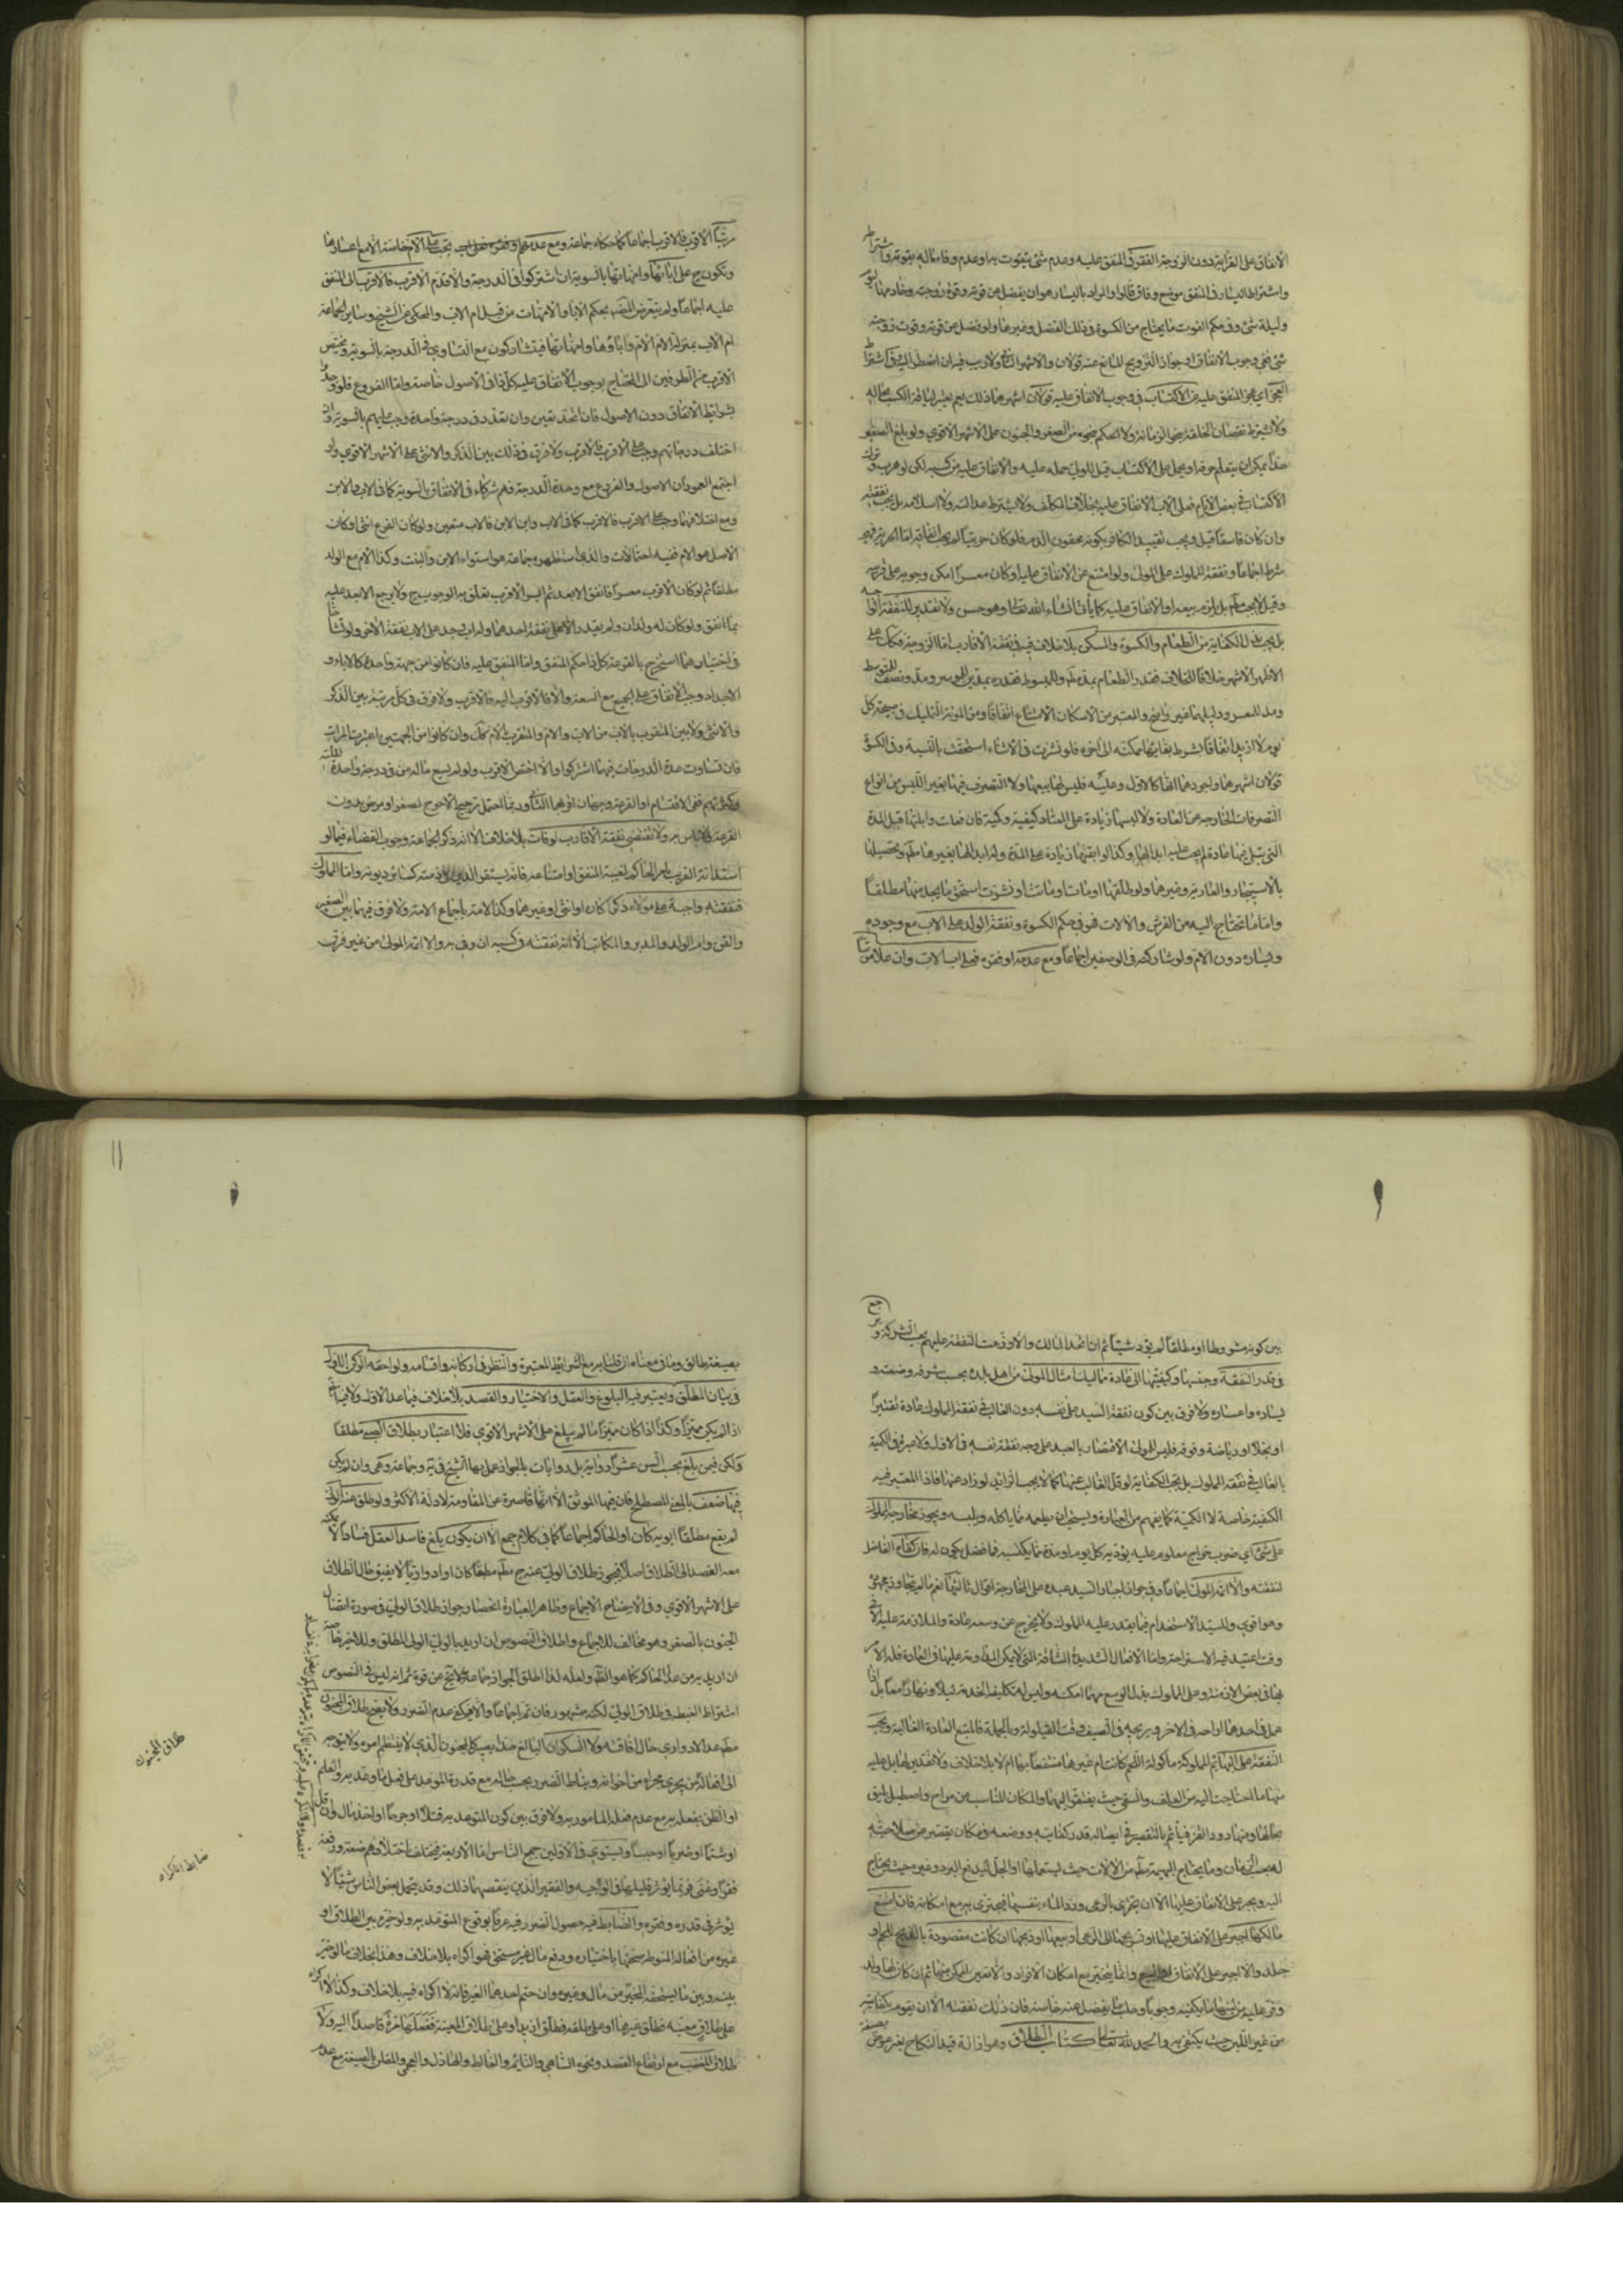 الانفاق على القرابة دون الزوجة الفقر في المنفق عليه وعدم شئ يتقوت به او عدم وفاء ماله بقوته واشتراط
واشتراط اليسار في المنفق موضع وفاق قالوا والمراد باليسار هو ان يفضل عن قوته وقوة زوجته وخادمها ليوم
وليلة شئ وفي حكم القوت ما يحتاج من الكسوة في ذلك الفصل وغيرها ولو فضل عن قوته وقوت زوجته
شئ ففي وجوب الانفاق او جواز التزويج المانع عنه قولان والاشهر الثاني ولا ريب فيه ان اضطر اليه وفي اشتراط
العجز اي عجز المنفق عليه عن الاكتساب في وجوب الانفاق عليه قولان اشهرهما ذلك نعم يعتبر لياقة الكسب بحاله
ولا يشترط نقصان الخلقة نحو الزمانة ولا الحكم نحوه من الصغر والجنون على الاشهر الاقوي ولو بلغ الصغير
حدا يمكن ان يتعلم حرفة او يحمل على الاكتساب قيل للولي حمله عليه والانفاق عليه من كسبه لكن لو هرب وترك
الاكتساب في بعض الايام فعلى الاب الانفاق عليه بخلاف المكلف ولا يشترط عدالته ولا اسلامه بل يجب نفقته
وان كان فاسقا قيل ويجب تقييد الكافر بكونه محقون الدم فلو كان حربيا لم يجب انفاقه اما الحرية فهي
شرط اجماعا ونفقة المملوك على المولى ولو امتنع عن الانفاق عليه او كان معسرا امكن وجوبه على قريبه
وقيل لا يجب مط بل يلزم ببيعه او الانفاق عليه كما يأتي انشاء الله تعالى وهو حسن ولا تقدير للنفقة الواجبة
بل يجب بذل الكفاية من الطعام والكسوة والسكنى بلا خلاف فيه في نفقة الاقارب اما الزوجة فكك على
الاظهر الاشهر خلافا للخلاف فقدر الطعام بمد مط وللمبسوط فقدره بمدين للموسر ومد ونصف للمتوسط
ومد للمعسر ودليلهما غير واضح والمعتبر من الاسكان الامتاع اتفاقا ومن المونة التمليك في صبيحة كل
يوم لا ازيد اتفاقا بشرط بقائها ممكنة الى آخره فلو نشزت في الاثناء استحقت بالنسبة وفي الكسوة
قولان اشهرهما واجودهما انها كالاول وعليه فليس لها بيعها ولا التصرف فيها بغير اللبس من انواع
التصرفات الخارجة عن العادة ولا لبسها زيادة على المعتاد كيفية وكمية فان فعلت وابلتها قبل المدة
التي تبلى فيها عادة لم يجب عليه ابدالها وكذا لو ابقتها زيادة على المدة وله ابدالها بغيرها مط وتحصيلها
بالاستيجار والعارية وغيرهما ولو طلقها او مات او ماتت او نشزت استحق ما يجد منها مطلقا
واما ما تحتاج اليه من الفرش والآلات فهو في حكم الكسوة ونفقة الولد على الاب مع وجوده
ويساره دون الام ولو شاركته في الوصفين اجماعا ومع عدمه او فقره فعلى اب الاب وان علا مرتبا
مرتبا الاقرب فالاقرب اجماعا كما حكاه جماعة ومع عدمهم او فقرهم تجب على الام خاصة الا مع اعسارها
وتكون ح على آبائها وامهاتها بالسوية ان اشتركوا في الدرجة والا قدم الاقرب فالاقرب الى المنفق
عليه اجماعا ولم يتعرض المصنف بحكم الاباء والامهات من قبل ام الاب والمحكي عن الشيخ وساير الجماعة
ام الاب بمنزلة الام الام وآباؤها وامهاتها فيتشاركون مع التساوي في الدرجة بالسوية ويختص
الاقرب من الطرفين الى المحتاج بوجوب الانفاق عليه كل ذا في الاصول خاصة واما الفروع فلو وجدوا
بشرائط الانفاق دون الاصول فان اتحد تعين وان تعدد في درجة واحدة وجب عليهم بالسوية وان
اختلف درجاتهم وجب على الاقرب فالاقرب ولا فرق في ذلك بين الذكر والانثى على الاشهر الاقوي ولو
اجتمع العمودان الاصول والفروع مع وحدة الدرجة فهم شركاء في الانفاق بالسوية كما في الاب والابن
ومع اختلافها وجب على الاقرب فالاقرب كما في الاب وابن الابن فالاب متعين ولو كان الفرع انثى او كان
الاصل هو الام ففيه احتمالات والذي استظهره جماعة هو استواء الابن والبنت وكذا الام مع الولد
مطلقا ثم لو كان الاقرب معسرا فانفق الابعد ثم ايسر الاقرب تعلق به الوجوب ح ولا يرجع الابعد عليه
بما انفق ولو كان له ولدان ولم يقدر الا على نفقة احدهما وله اب وجب على الاب نفقة الآخر ولو تشاحا
في اختيارهما استخرج بالقرعة كل ذا حكم المنفق واما المنفق عليه فان كانوا من جهة واحدة كالاباء و
الاجداد وجب الانفاق على الجميع مع السعة والا فالاقرب اليه فالاقرب ولا فرق في كل مرتبة بين الذكر
والانثى ولا بين المتقرب بالاب من الاب والام والمتقرب بالام كك وان كانوا من الجهتين اعتبرت المراتب
فان تساوت عدة الدرجات فيها اشتركوا والا اختص الاقرب ولو لم يسع ماله من في درجة واحدة لقلته
وكثرتهم ففي الاقتسام او القرعة وجهان اقربهما الثاني وربما احتمل ترجيح الاحوج لصغر او مرض بدون
القرعة ولا باس به ولا تقضي نفقة الاقارب لو فاتت بلا خلاف الا انه ذكر الجماعة وجوب القضاء فيما لو
استدانه القريب بامر الحاكم لغيبة المنفق او امتناعه فانه يستقر الدين في ذمته كسائر ديونه واما المملوك
فنفقته واجبة على مولاه ذكرا كان او انثى او غيرهما وكذا الامة باجماع الامة ولا فرق فيها بين الصغير
والقن وام الولد والمدبر والمكاتب الا انه نفقته في كسبه ان وفى به والا اتمه المولى من غير فرق
بين كونه مشروطا او مطلقا لم يؤد شيئا ثم ان اتحد المالك والا وزعت النفقة عليهم بحسب الشركة ويرجع
في قدر النفقة وجنسها وكيفيتها الى عادة مماليك امثال المولى من اهل بلده بحسب شرفه وضعته و
يساره واعساره ولا فرق بين كون نفقة السيد على نفسه دون الغالب في نفقة المملوك عادة تقتيرا
او بخلا او رياضة وفوقه فليس للمولى الاقتصار بالعبد على وجه نفقة نفسه في الاول ولا عبرة في الكمية
بالغالب في نفقة المملوك بل يجب الكفاية لو قل الغالب عنها كما لا يجب الزائد لو زاد عنها فاذا المعتبر فيه
الكيفية خاصة لا الكمية كما يفهم من العبارة ويستحب ان يطعمه مما ياكله ويلبسه ويجوز مخارجة المملوك
على شئ اي ضرب خراج معلوم عليه يؤديه كل يوم او مدة مما يكتسبه فما فضل يكون له فان كفاه الفاضل
لنفقته والا اتمه المولى اجماعا وفي جواز اجبار السيد عبده على المخارجة اقوال ثالثها نعم ما لم يتجاوز مجهوده
وهو اقوي وللسيد الاستخدام فيما يقدر عليه المملوك ولا يخرج عن وسعه عادة والملازمة عليه الا في
وقت اعتيد فيه الاستراحة واما الافعال الشديدة الشاقة التي لا يمكن المداومة عليها في العادة فله الامر
بها في بعض الازمنة وعلى المملوك بذل الوسع مهما امكنه وليس له تكليفه الخدمة ليلا ونهارا معا بل اذا
عمل في احدهما اراحه في الاخر ويريحه في الصيف وقت القيلولة وبالجملة فالمتبع العادة الغالبة ويجب
النفقة على البهائم المملوكة ماكولة اللحم كانت ام غيرها منتفعا بها ام لا بلا خلاف ولا تقدير لها بل عليه
منها ما احتاجت اليه من العلف والسقي حيث يفتقر اليهما والمكان المناسب من مراح واصطبل يليق
بحالها ومنها دود القز فيأثم بالتقصير في ايصاله قدر كفايته ووضعه في مكان يقصر عن صلاحيته
له بحسب الزمان وما يحتاج البهيمة مط من الآلات حيث يستعملها او الجل لدفع البرد وغيره حيث يحتاج
اليه ويجبر على الانفاق عليها الا ان يجتزى بالرعي وورد الماء بنفسها فيجتزى به مع امكانه فان امتنع
مالكها اجبر على الانفاق عليها او تسريحها الى الرعي او بيعها او ذبحها ان كانت مقصودة بالذبح للحم او
جلد والا اجبر على الانفاق او البيع وانما يتخير مع امكان الافراد والا تعين الممكن منها ثم ان كان لها ولد
وفر عليه من لبنها ما يكفيه وجوبا وحلب ما يفضل عنه خاصة فان ذلك نفقته الا ان يقوم بكفايته
من غير اللبن حيث يكتفي به والحمد لله تعالى كتاب الطلاق وهو ازالة قيد النكاح بغير عوض بصيغة
بصيغة طالق وما في معناه ان قلنا به مع الشرائط المعتبرة والنظر في اركانه واقسامه ولواحقه الركن الاول
في بيان المطلق ويعتبر فيه البلوغ والعقل والاختيار والقصد بلا خلاف فيما عدا الاول ولا فيه ايضا
اذا لم يكن مميزا وكذا اذا كان مميزا ما لم يبلغ على الاشهر الاقوي فلا اعتبار بطلاق الصبي مطلقا
ولكن فيمن بلغ بحسب السن عشرا رواية بل روايات بالجواز عمل بها الشيخ في ية وجماعة وهي وان لم يكن
فيها ضعف بالمعنى المصطلح فان فيها الموثق الا انها قاصرة عن المقاومة لادلة الاكثر ولو طلق عنه الولي
لم يقع مطلقا ابوه كان او الحاكم اجماعا كما في كلام جمع الا ان يكون بلغ فاسد العقل فسادا لا يمكنه
معه القصد الى الطلاق اصلا فيجوز طلاق الولي عنه ح مط مطبقا كان او ادواريا لا يفيق حال الطلاق
على الاشهر الاقوي وفي الايضاح الاجماع وظاهر العبارة انحصار جواز طلاق الولي في صورة اتصال
الجنون بالصغر وهو مخالف للاجماع واطلاق النصوص ان اريد بالولي الولي المطلق وللاخير خاصة
ان اريد به من عدا الحاكم كما هو الظ ولعله لذا اطلق الجواز جماعة ولا يخ عن قوة ثم انه ليس في النصوص
اشتراط الغبطة في طلاق الولي لكنه مشهور فان تم اجماعا والا فيكفي عدم الضرر ولا يصح طلاق المجنون
مط عدا الادواري حال افاقته ولا السكران البالغ حدا يصير كالمجنون الذي لا ينتظم امره ولا يتوجه
الى افعاله من يجري مجراه من اخوانه ويناط الضرر بحسب حاله مع قدرة المتوعد على فعل ما وعد به والعلم
او الظن بفعله به مع عدم فعله المامور به ولا فرق بين كون المتوعد به قتلا او جرحا او اخذ مال وان قل
او شتما او ضربا او حبسا ويستوي في الاولين جميع الناس اما الاربعة فيختلف باختلافهم ضعة ورفعة
فقرا وغنى فربما يؤثر قليلها في الوجيه والفقير الذي ينقصهما ذلك وقد يتحمل بعض الناس شيئا لا
يؤثر في قدره وفقره والضابط فيه حصول الضرر فيه عرفا بوقوع المتوعد به ولو خيره بين الطلاق او
غيره من افعاله المنوط صحتها باختياره ودفع مال غير مستحق فهو اكراه بلا خلاف وهذا بخلاف ما لو خير
بينه وبين ما يستحقه المخير من مال وغيره وان حتم احدهما الغير فانه لا اكراه فيه بلا خلاف وكذا لا اكراه
على طلاق معينة فطلق غيرها او على طلقة فطلق ازيد او على طلاق المعينة ففعلها غيره قاصدا اليه ولا
طلاق المغضب مع ارتفاع القصد ونحوه الساهي والنائم والغالط والهازل والعجمي والملقن بالصيغة مع عدم
طلاق المجنون
ضابط اكراه